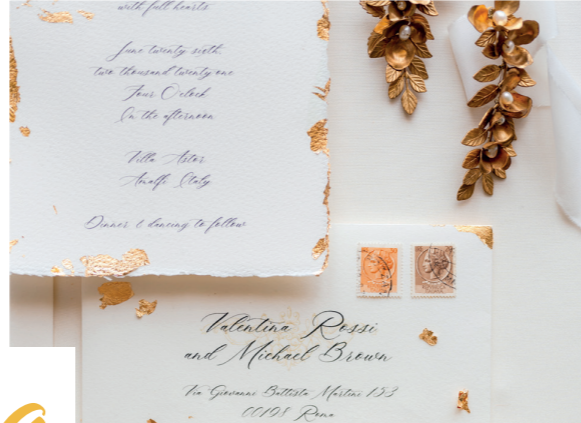 with full hearts
June twenty sixth
two thousand twenty one
Four O'clock
In the afternoon
Villa Astor
Amalfi Italy
Dinner & dancing to follow
Valentina Rossi
and Michael Brown
Via Giovanni Battista Martini 153
00198 Roma